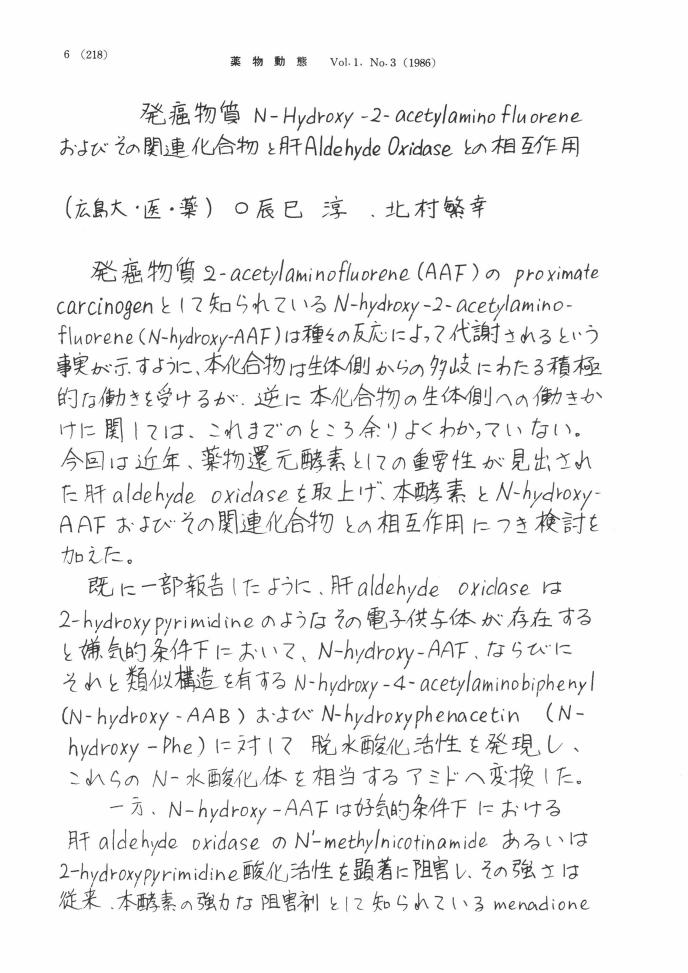 6 (218)
薬物動態 Vol.1, No.3 (1986)
発癌物質 N-Hydroxy-2-acetylaminofluorene
およびその関連化合物と肝Aldehyde Oxidaseとの相互作用
(広島大・医・薬) ○辰巳 淳、北村繁幸
発癌物質2-acetylaminofluorene (AAF)の proximate
carcinogenとして知られているN-hydroxy-2-acetylamino-
fluorene (N-hydroxy-AAF)は種々の反応によって代謝されるという
事実が示すように、本化合物は生体側からの多岐にわたる積極
的な働きを受けるが、逆に本化合物の生体側への働きか
けに関しては、これまでのところ余りよくわかっていない。
今回は近年、薬物還元酵素としての重要性が見出され
た肝aldehyde oxidaseを取上げ、本酵素とN-hydroxy-
AAFおよびその関連化合物との相互作用につき検討を
加えた。
既に一部報告したように、肝aldehyde oxidaseは
2-hydroxypyrimidineのようなその電子供与体が存在する
と嫌気的条件下において、N-hydroxy-AAF、ならびに
それと類似構造を有するN-hydroxy-4-acetylaminobiphenyl
(N-hydroxy-AAB)およびN-hydroxyphenacetin (N-
hydroxy-Phe)に対して脱水酸化活性を発現し、
これらのN-水酸化体を相当するアミドへ変換した。
一方、N-hydroxy-AAFは好気的条件下における
肝aldehyde oxidaseのN'-methylnicotinamideあるいは
2-hydroxypyrimidine酸化活性を顕著に阻害し、その強さは
従来、本酵素の強力な阻害剤として知られているmenadione